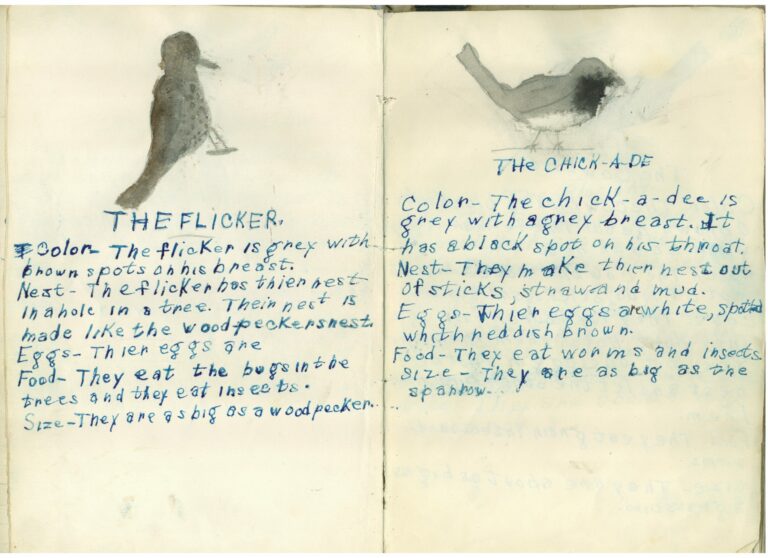 THE FLICKER.
Color- The flicker is grey with
brown spots on his breast.
Nest- The flicker has thier nest
in a hole in a tree. Their nest is
made like the woodpeckers nest.
Eggs- Thier eggs are
Food- They eat the bugs in the
trees and they eat insects.
Size- They are as big as a woodpecker.
THE CHICK-A-DE
Color- The chick-a-dee is
grey with a grey breast. It
has a black spot on his throat.
Nest- They make thier nest out
of sticks, straw and mud.
Eggs- Thier eggs are white, spotted
whith reddish brown.
Food- They eat worms and insects.
Size- They are as big as the
sparrow.